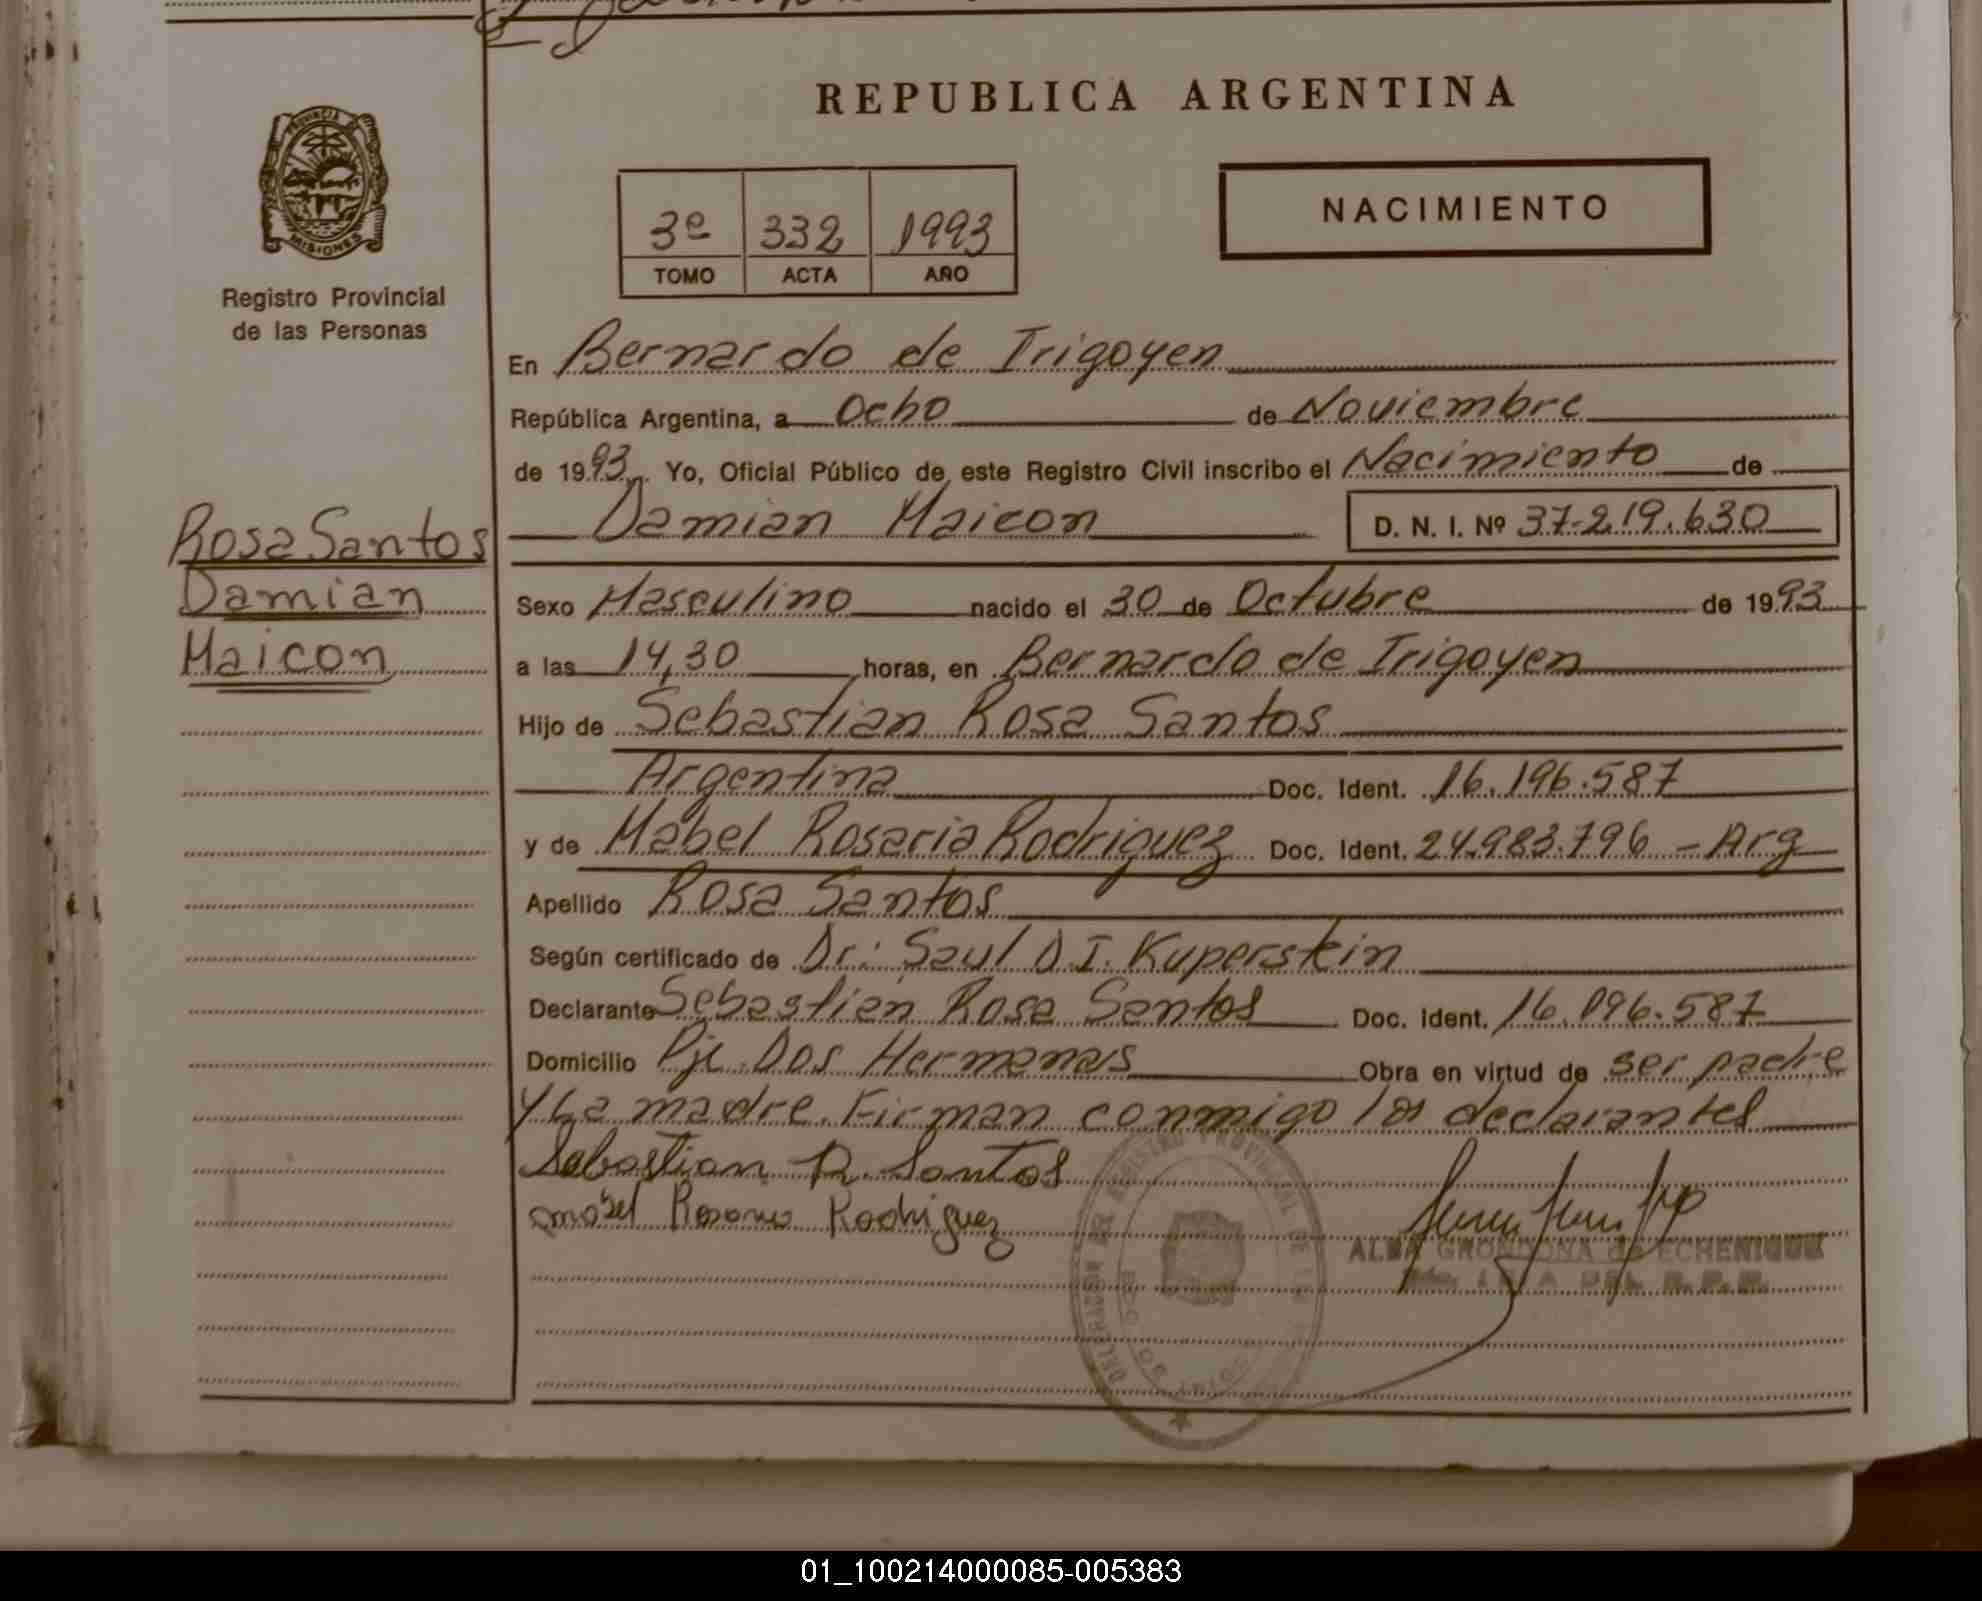 REPUBLICA ARGENTINA
PROVINCIA DE
MISIONES
Registro Provincial
de las Personas
NACIMIENTO
3º 332 1993
TOMO ACTA AÑO
En Bernardo de Irigoyen
República Argentina, a Ocho de Noviembre
de 1993. Yo, Oficial Público de este Registro Civil inscribo el Nacimiento de
Damian Maicon D. N. I. Nº 37.219.630
Rosa Santos
Damian
Maicon
Sexo Masculino nacido el 30 de Octubre de 1993
a las 14,30 horas, en Bernardo de Irigoyen
Hijo de Sebastian Rosa Santos
Argentina Doc. Ident. 16.196.587
y de Mabel Rosaria Rodriguez Doc. Ident. 24.983.796 - Arg
Apellido Rosa Santos
Según certificado de Dr: Saul D.I. Kuperstein
Declarante Sebastian Rosa Santos Doc. Ident. 16.196.587
Domicilio Pje. Dos Hermanas Obra en virtud de ser padre
y La madre. Firman conmigo los declarantes
Sebastian R. Santos
Rodriguez
ALBA GRONDONA de ECHENIQUE
DEL R.P.P.
REGISTRO PROVINCIAL DE
01_100214000085-005383